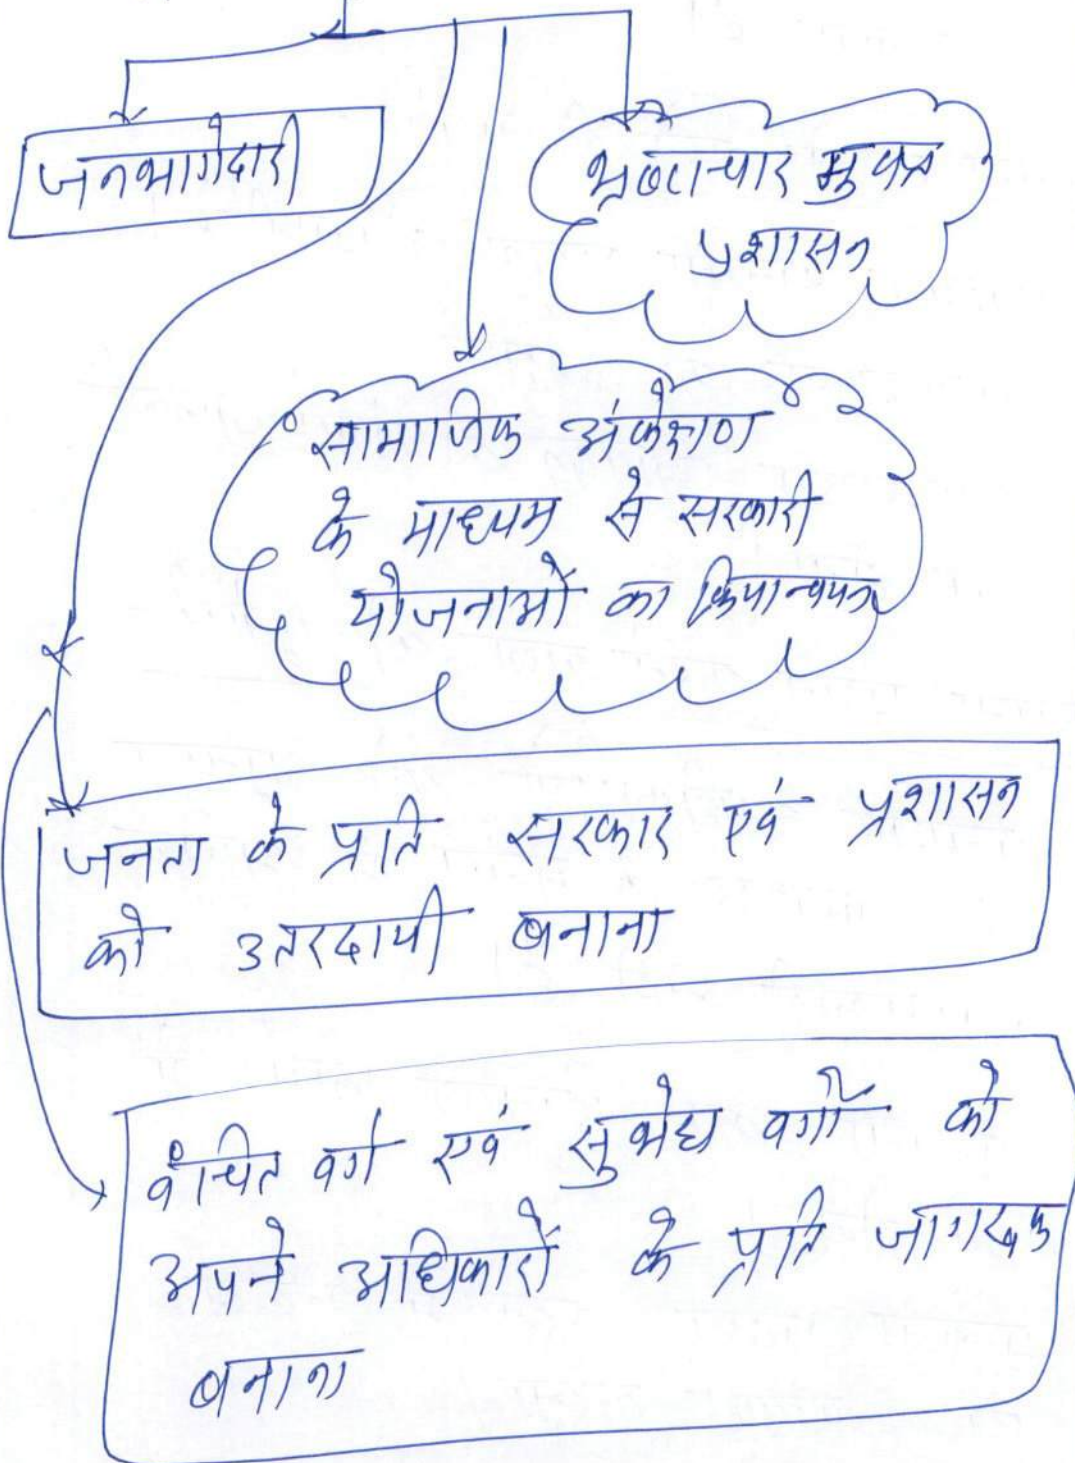 जनभागेदारी
भ्रष्टाचार मुक्त
प्रशासन
सामाजिक अंकेक्षण
के माध्यम से सरकारी
योजनाओं का क्रियान्वयन
जनता के प्रति सरकार एवं प्रशासन
को उतरदायी बनाना
वंचित वर्ग एवं सुभेद्य वर्गों को
अपने अधिकारों के प्रति जागरूक
बनाना